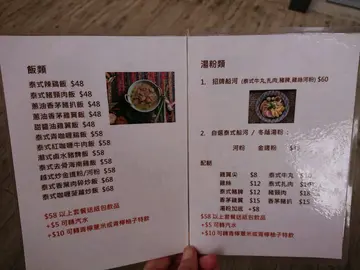 飯類
泰式辣雞飯 $48
泰式豬頸肉飯 $48
蔥油香茅豬扒飯 $48
蔥油香茅雞翼飯 $48
甜醬油雞翼飯 $48
泰式青咖喱雞飯 $58
泰式紅咖喱牛肉飯 $58
潮式鹵水豬脾飯 $58
泰式去骨海南雞飯 $58
越式炒金邊粉/河粉 $58
泰式香葉肉碎炒飯 $68
泰式咖喱菠蘿炒飯 $68
$58 以上套餐送紙包飲品
+$5 可轉汽水
+$10 可轉青檸薏米或青檸柚子特飲
湯粉類
1. 招牌船河 (泰式牛丸,扎肉,豬膶,雞絲河粉) $60
2. 自選泰式船河 / 冬蔭湯粉
河粉 金邊粉
配餸
雞翼尖 $8 泰式牛丸
雞絲 $12 泰式扎肉
泰式豬膶 $12 泰式豬頸肉 $15
香茅豬扒 $15 香茅雞翼 $15
湯粉加底 +$8
$58 以上套餐送紙包飲品
+$5 可轉汽水
+$10 可轉青檸薏米或青檸柚子特飲